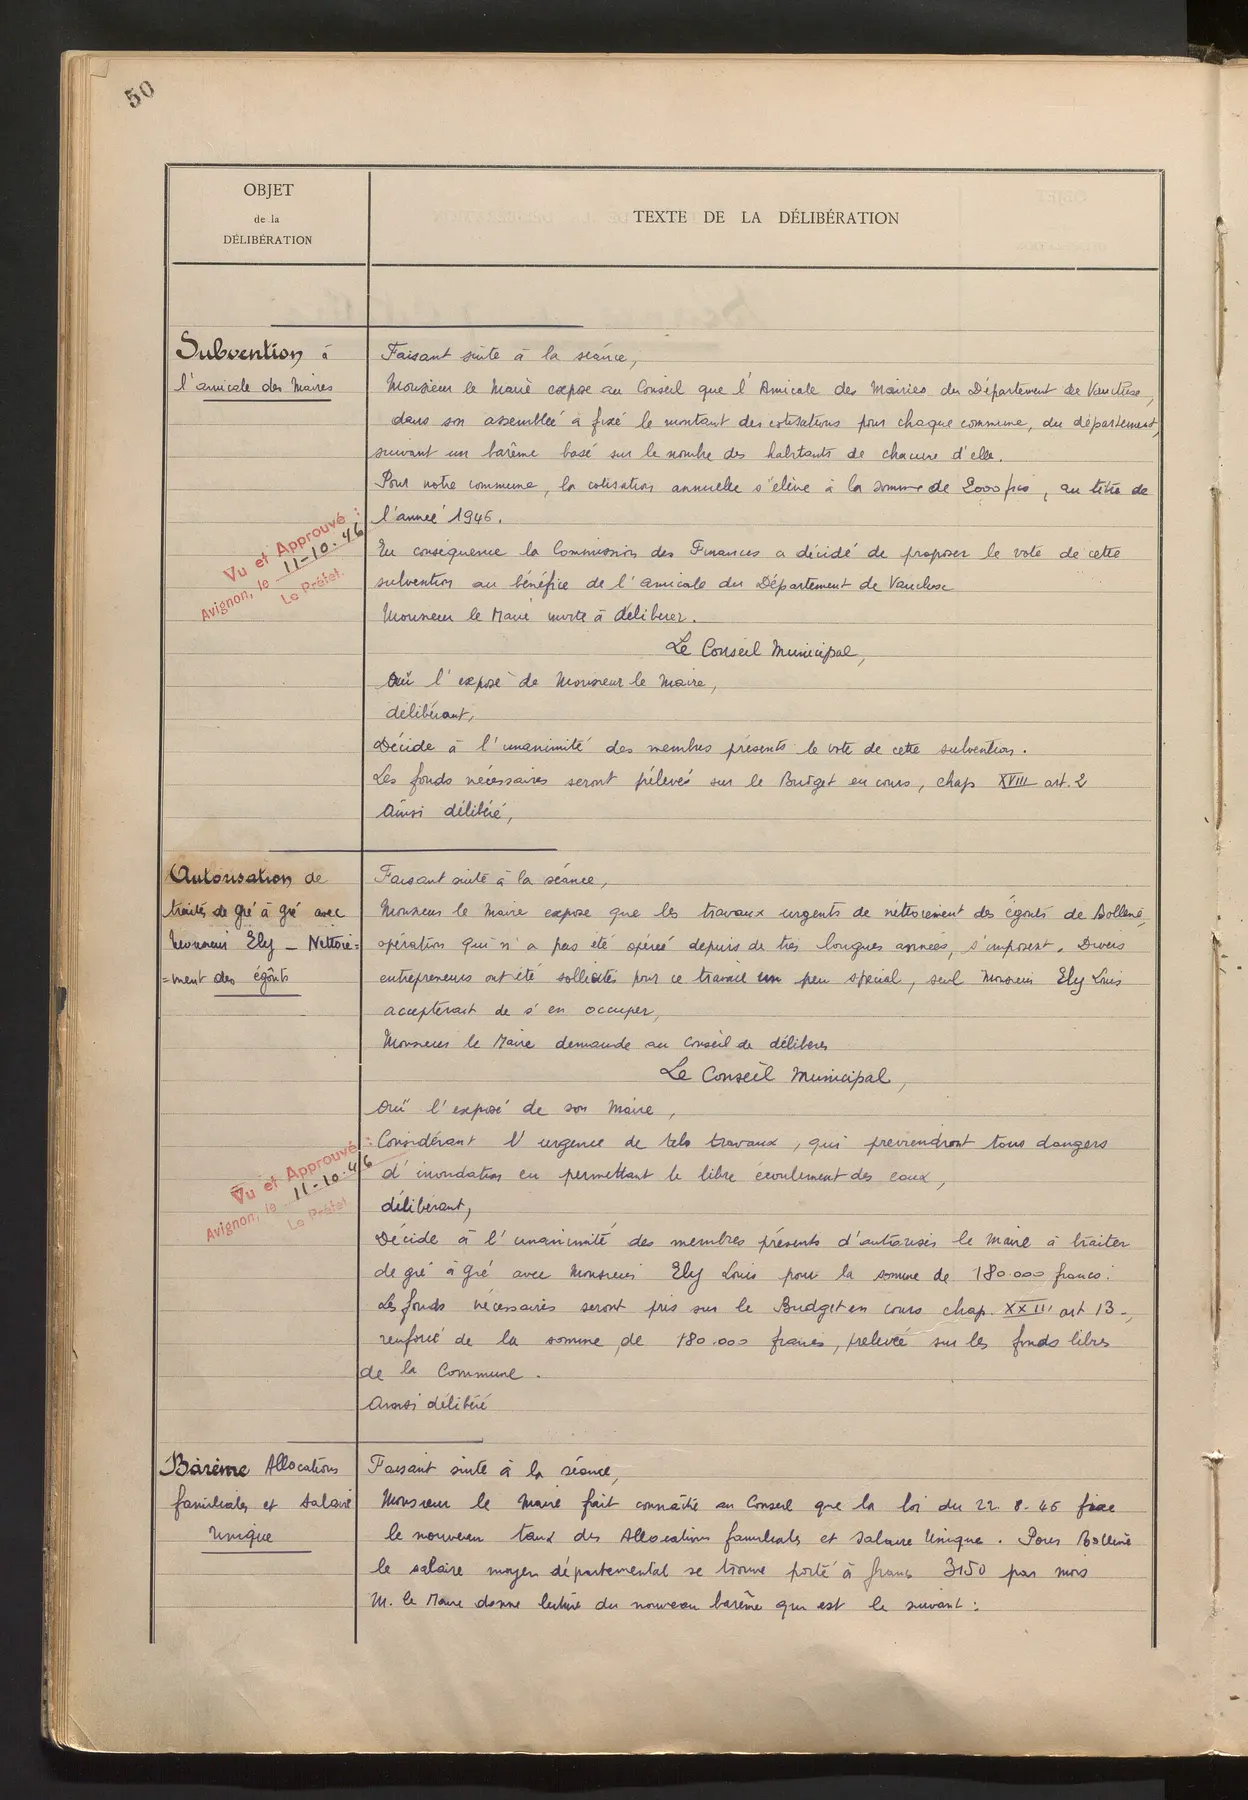 50
OBJET
de la
DÉLIBÉRATION
TEXTE DE LA DÉLIBÉRATION
Subvention à
l'amicale des Maires
Faisant suite à la séance,
Monsieur le Maire expose au Conseil que l'Amicale des Mairies du Département de Vaucluse,
dans son assemblée a fixé le montant des cotisations pour chaque commune, du département,
suivant un barême basé sur le nombre des habitants de chacune d'elle.
Pour notre commune, la cotisation annuelle s'élève à la somme de 2000 frs, au titre de
l'année 1946.
En conséquence la Commission des Finances a décidé de proposer le vote de cette
subvention au bénéfice de l'amicale du Département de Vaucluse
Monsieur le Maire invite à déliberer.
Le Conseil Municipal,
Ouï l'exposé de Monsieur le Maire,
délibérant,
Décide à l'unanimité des membres présents le vote de cette subvention.
Les fonds nécessaires seront prélevés sur le Budget en cours, chap XVIII art. 2
Ainsi délibéré,
Vu et Approuvé :
Avignon, le 11-10-46
Le Préfet.
Autorisation de
traités de gré à gré avec
Monsieur Ely - Nettoie=
=ment des égôuts
Faisant suite à la séance,
Monsieur le Maire expose que les travaux urgents de nettoiement des égouts de Bollène,
opération qui n'a pas été opérée depuis de très longues années, s'imposent. Divers
entrepreneurs ont été sollicités pour ce travail un peu spécial, seul Monsieur Ely Louis
accepterait de s'en occuper,
Monsieur le Maire demande au Conseil de délibérer
Le Conseil Municipal,
Ouï l'exposé de son Maire,
Considérant l'urgence de tels travaux, qui previendront tous dangers
d'inondation en permettant le libre écoulement des eaux,
délibérant,
Décide à l'unanimité des membres présents d'autoriser le Maire à traiter
de gré à gré avec Monsieur Ely Louis pour la somme de 180.000 francs.
Les fonds nécessaires seront pris sur le Budget en cours chap. XXIII art 13-,
renforcé de la somme de 180.000 francs, prélevée sur les fonds libres
de la Commune.
Ainsi délibéré
Vu et Approuvé :
Avignon, le 11-10-46
Le Préfet
Barême Allocations
familiales et Salaire
Unique
Faisant suite à la séance,
Monsieur le Maire fait connaître au Conseil que la loi du 22.8.46 fixe
le nouveau taux des Allocations familiales et Salaire Unique. Pour Bollène
le salaire moyen départemental se trouve porté à francs 3150 par mois
M. le Maire donne lecture du nouveau barême qui est le suivant :